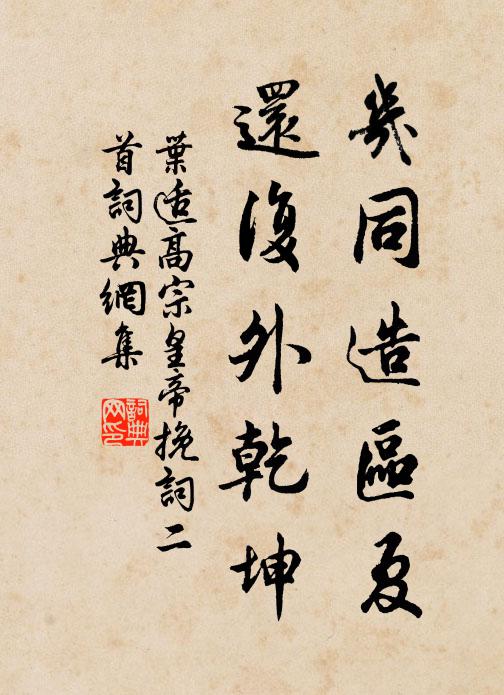 幾同造區夏
還復外乾坤
葉适高宗皇帝挽詞二
首詞典網集
詞典
网印